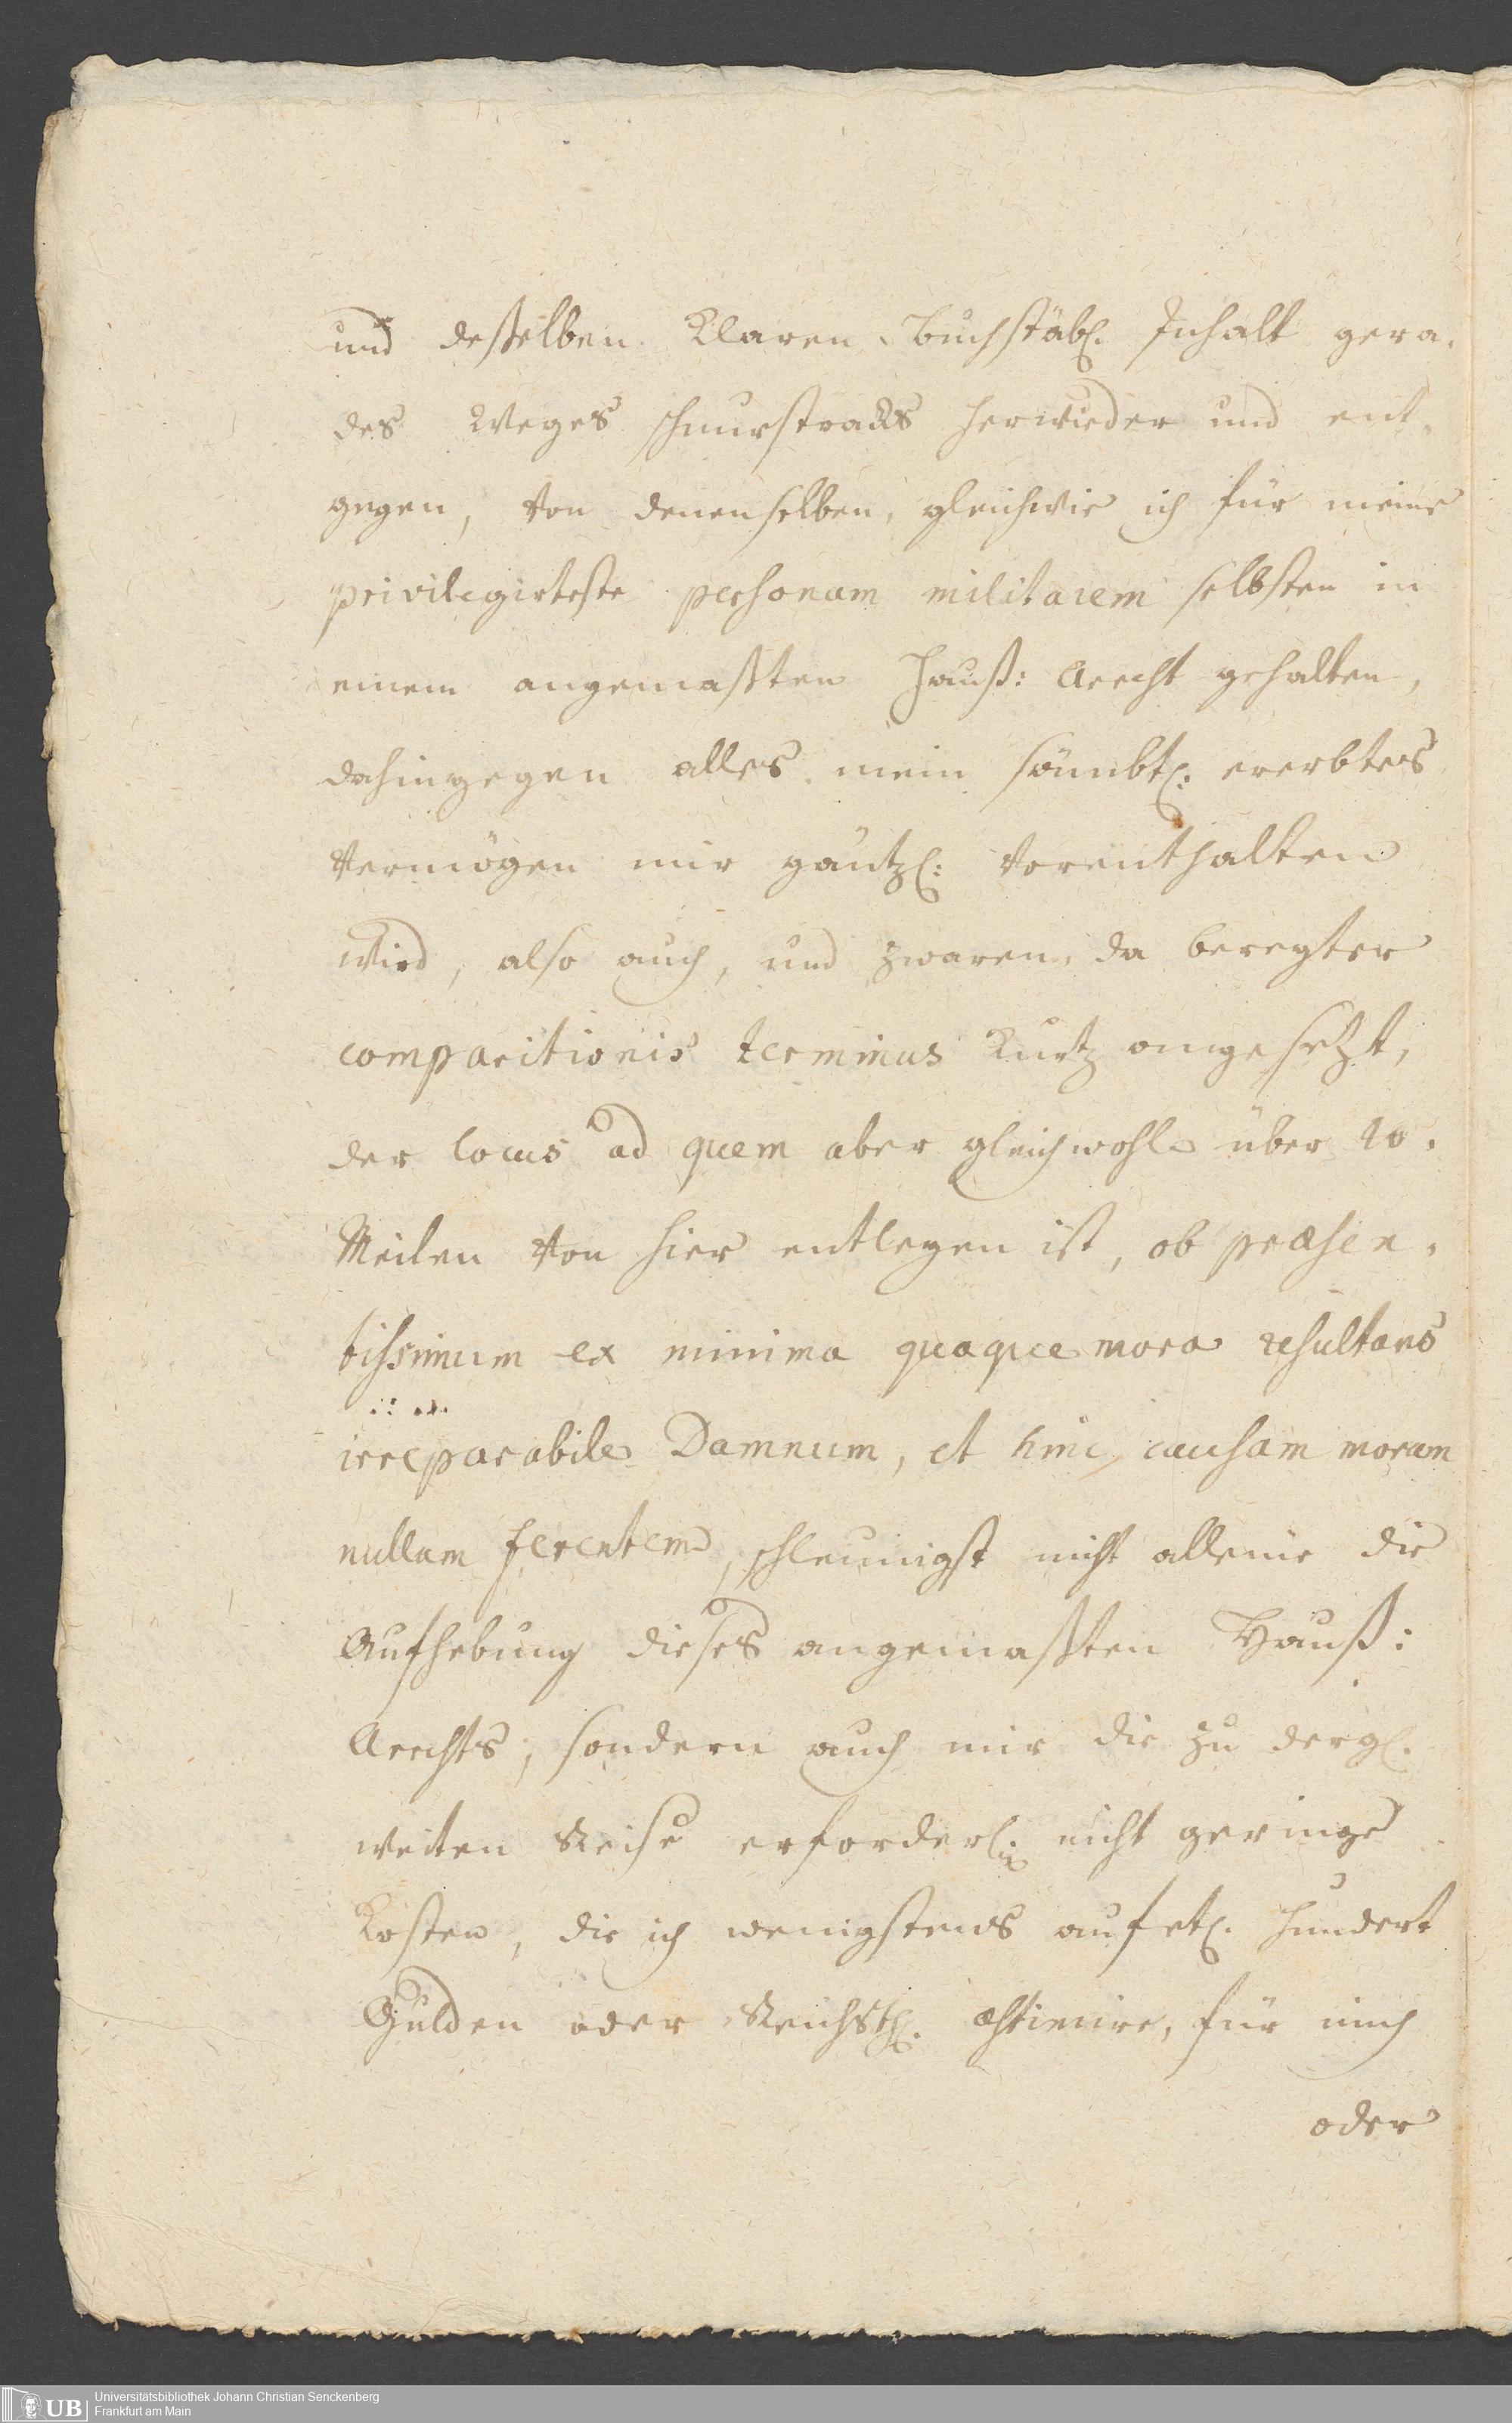 und deßelben Klaren Buchstäbl. Inhalt gera,
des Weeges schnurstracks herwieder und ent,
gegen, von denenselben, gleichwie ich für meine
privilegirteste personam militarem selbsten in
einem angemaßten Hauß: Arrest gehalten,
dahingegen alles mein sämbtl: ererbtes
Vermögen mir gäntzl: vorenthalten
wird, also auch, und zwaren, da beregter
comparitionis terminus Kurtz angesetzt,
der locus ad quem aber gleichwohl über 40.
Meilen von hier entlegen ist, ob præsen,
tissimum ex minima quaque mora resultans
irreparabile Damnum, et hinc causam moram
nullam ferentem, schleunigst nicht alleine die
Aufhebung dieses angemaßten Hauß:
Arrests, sondern auch mir die zu dergl.
weiten Reise erforderl: nicht geringe
Kosten, die ich wenigstens auf etl. hundert
Gulden oder Reichsthl. æstimire, für mich
oder
Universitätsbibliothek Johann Christian Senckenberg
Frankfurt am Main
UB